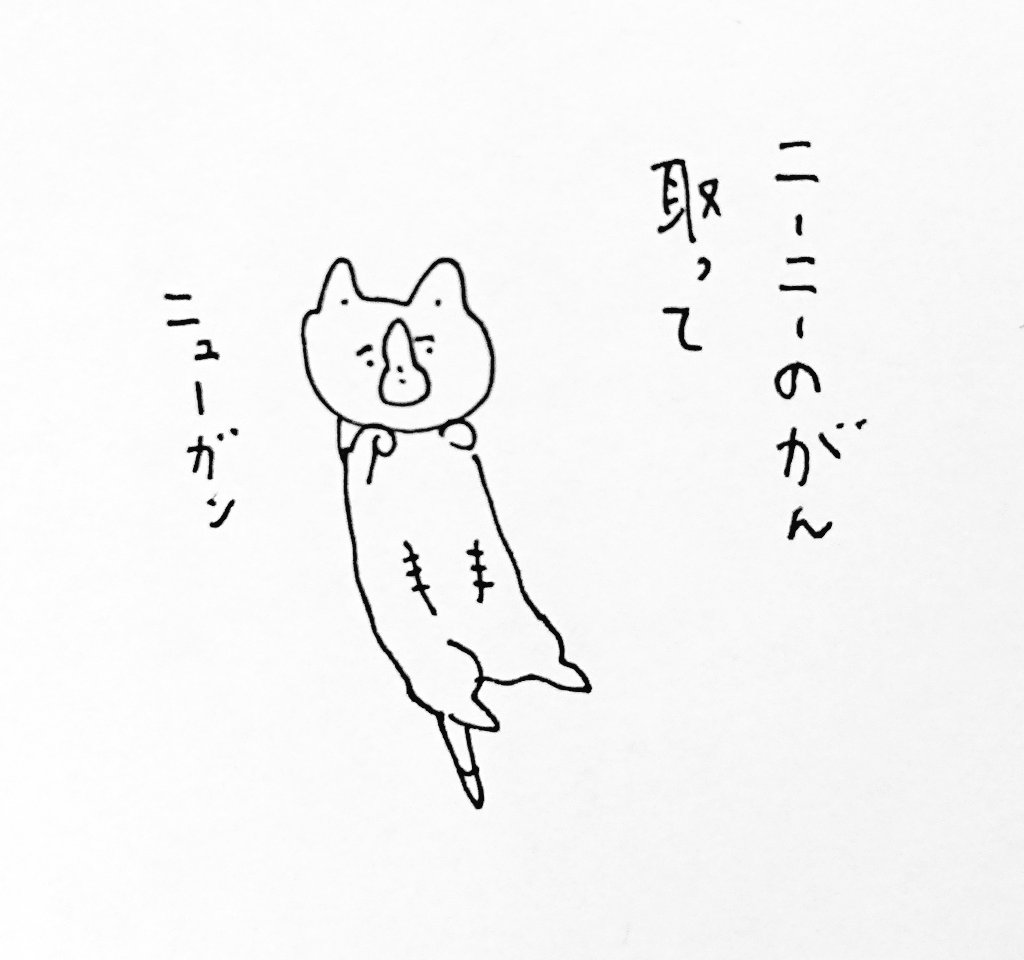 ニーニーのがん
取って
ニューガン